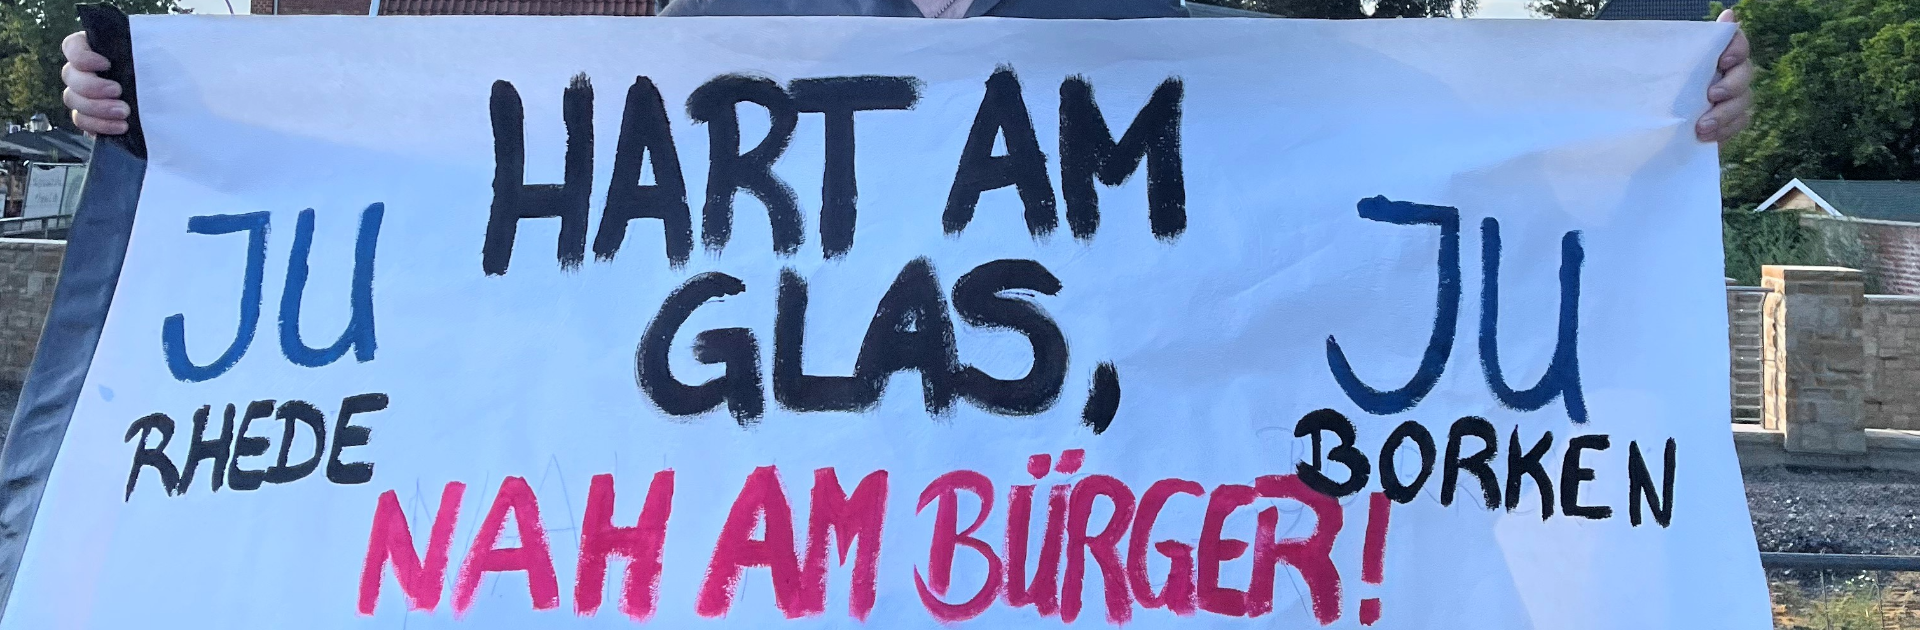 HART AM
GLAS,
NAH AM BÜRGER!
JU
RHEDE
JU
BORKEN